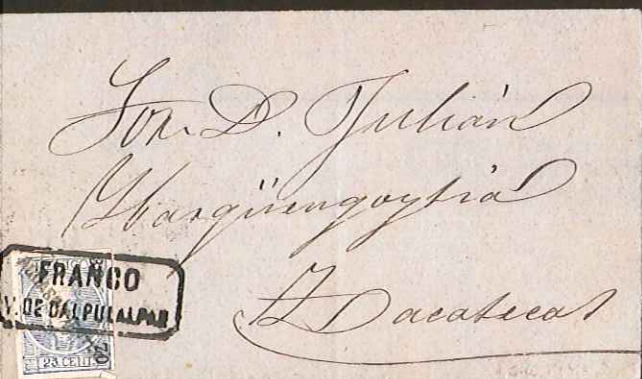 Sor. D. Julián
Ybargüengoytia
Zacatecas
FRANCO
V. DE DALPULALPAM
25 CENTS